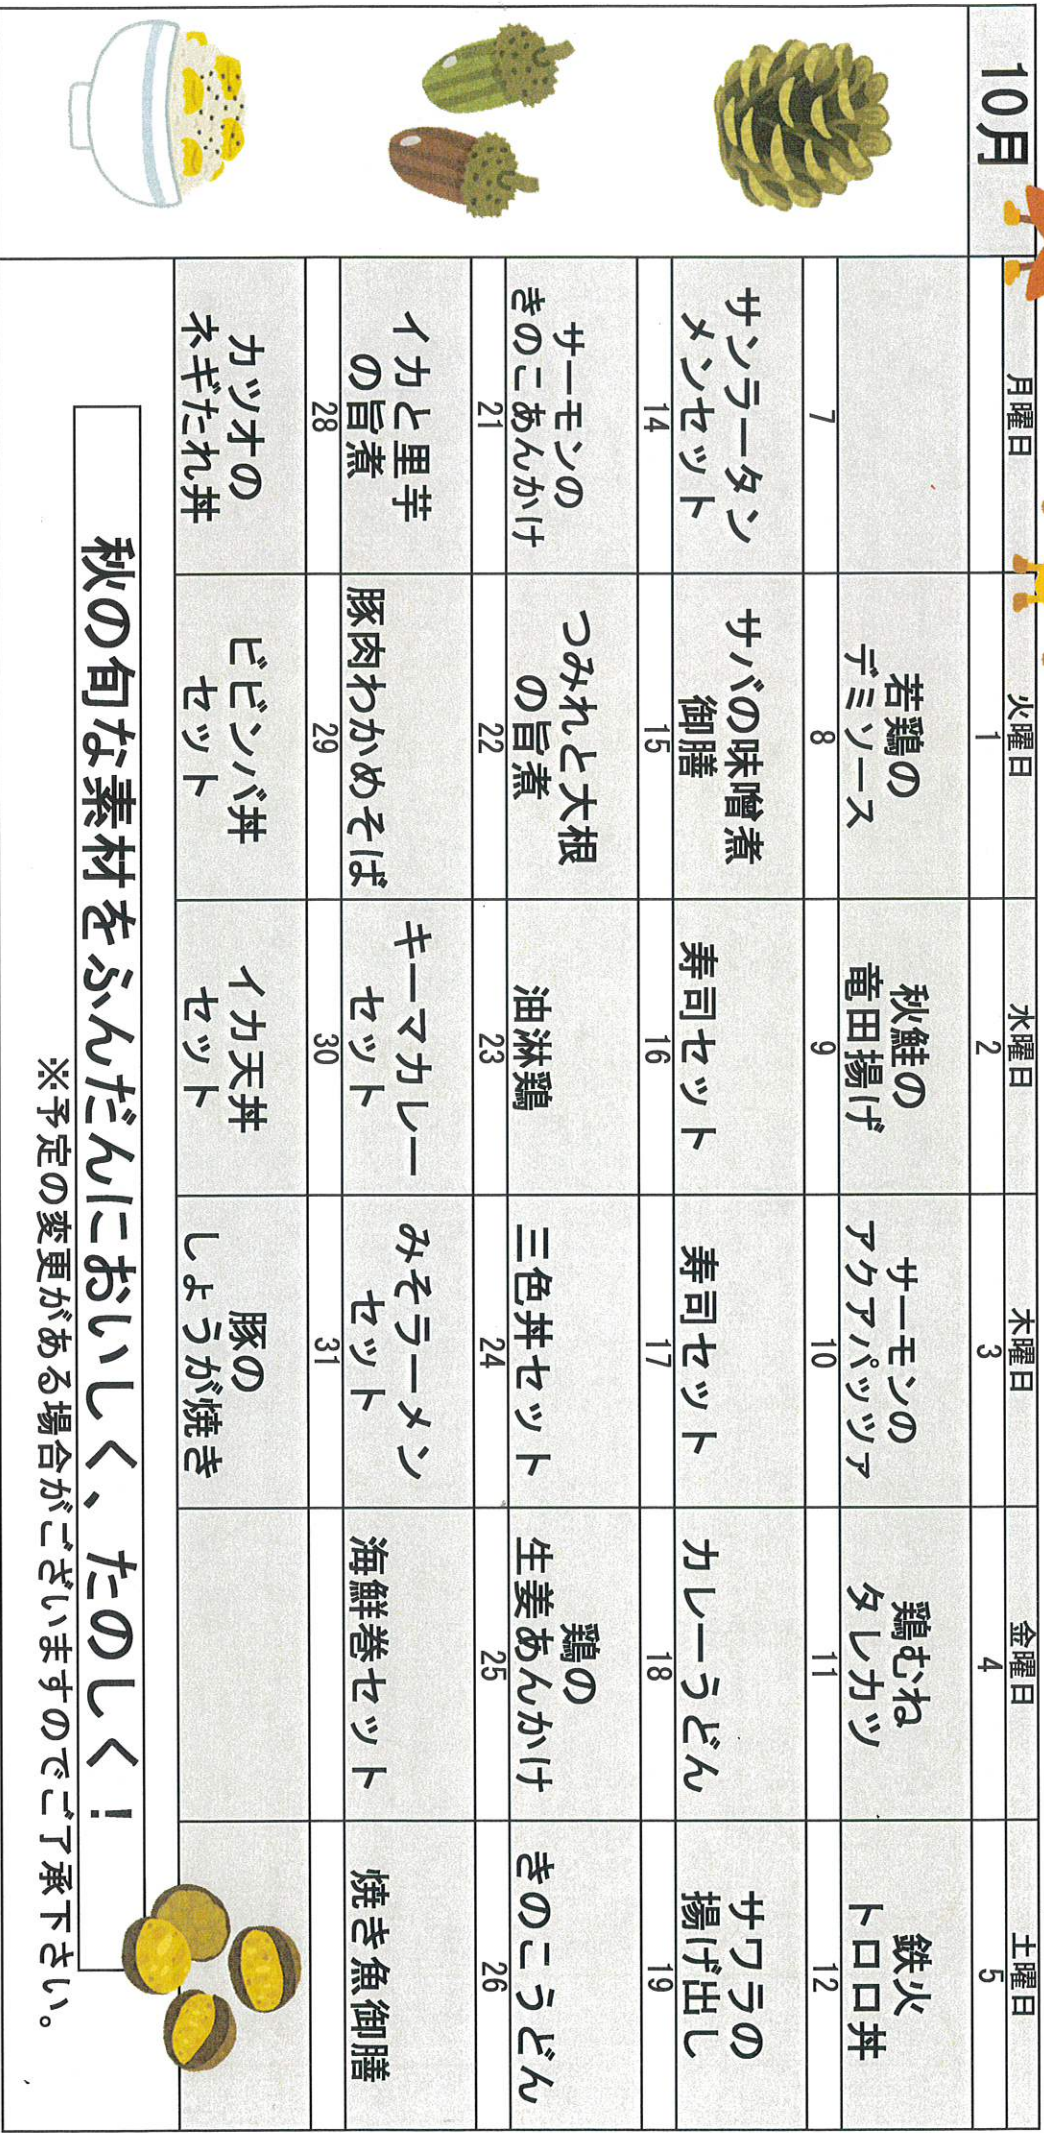 10月
月曜日 火曜日 水曜日 木曜日 金曜日 土曜日
1 2 3 4 5
若鶏の
デミソース
秋鮭の
竜田揚げ
サーモンの
アクアパッツァ
鶏むね
タレカツ
鉄火
トロロ丼
7 8 9 10 11 12
サンラータン
メンセット
サバの味噌煮
御膳
寿司セット
寿司セット
カレーうどん
サワラの
揚げ出し
14 15 16 17 18 19
サーモンの
きのこあんかけ
つみれと大根
の旨煮
油淋鶏
三色丼セット
鶏の
生姜あんかけ
きのこうどん
21 22 23 24 25 26
イカと里芋
の旨煮
豚肉わかめそば
キーマカレー
セット
みそラーメン
セット
海鮮巻セット
焼き魚御膳
28 29 30 31
カツオの
ネギたれ丼
ビビンバ丼
セット
イカ天丼
セット
豚の
しょうが焼き
秋の旬な素材をふんだんにおいしく、たのしく！
※予定の変更がある場合がございますのでご了承下さい。